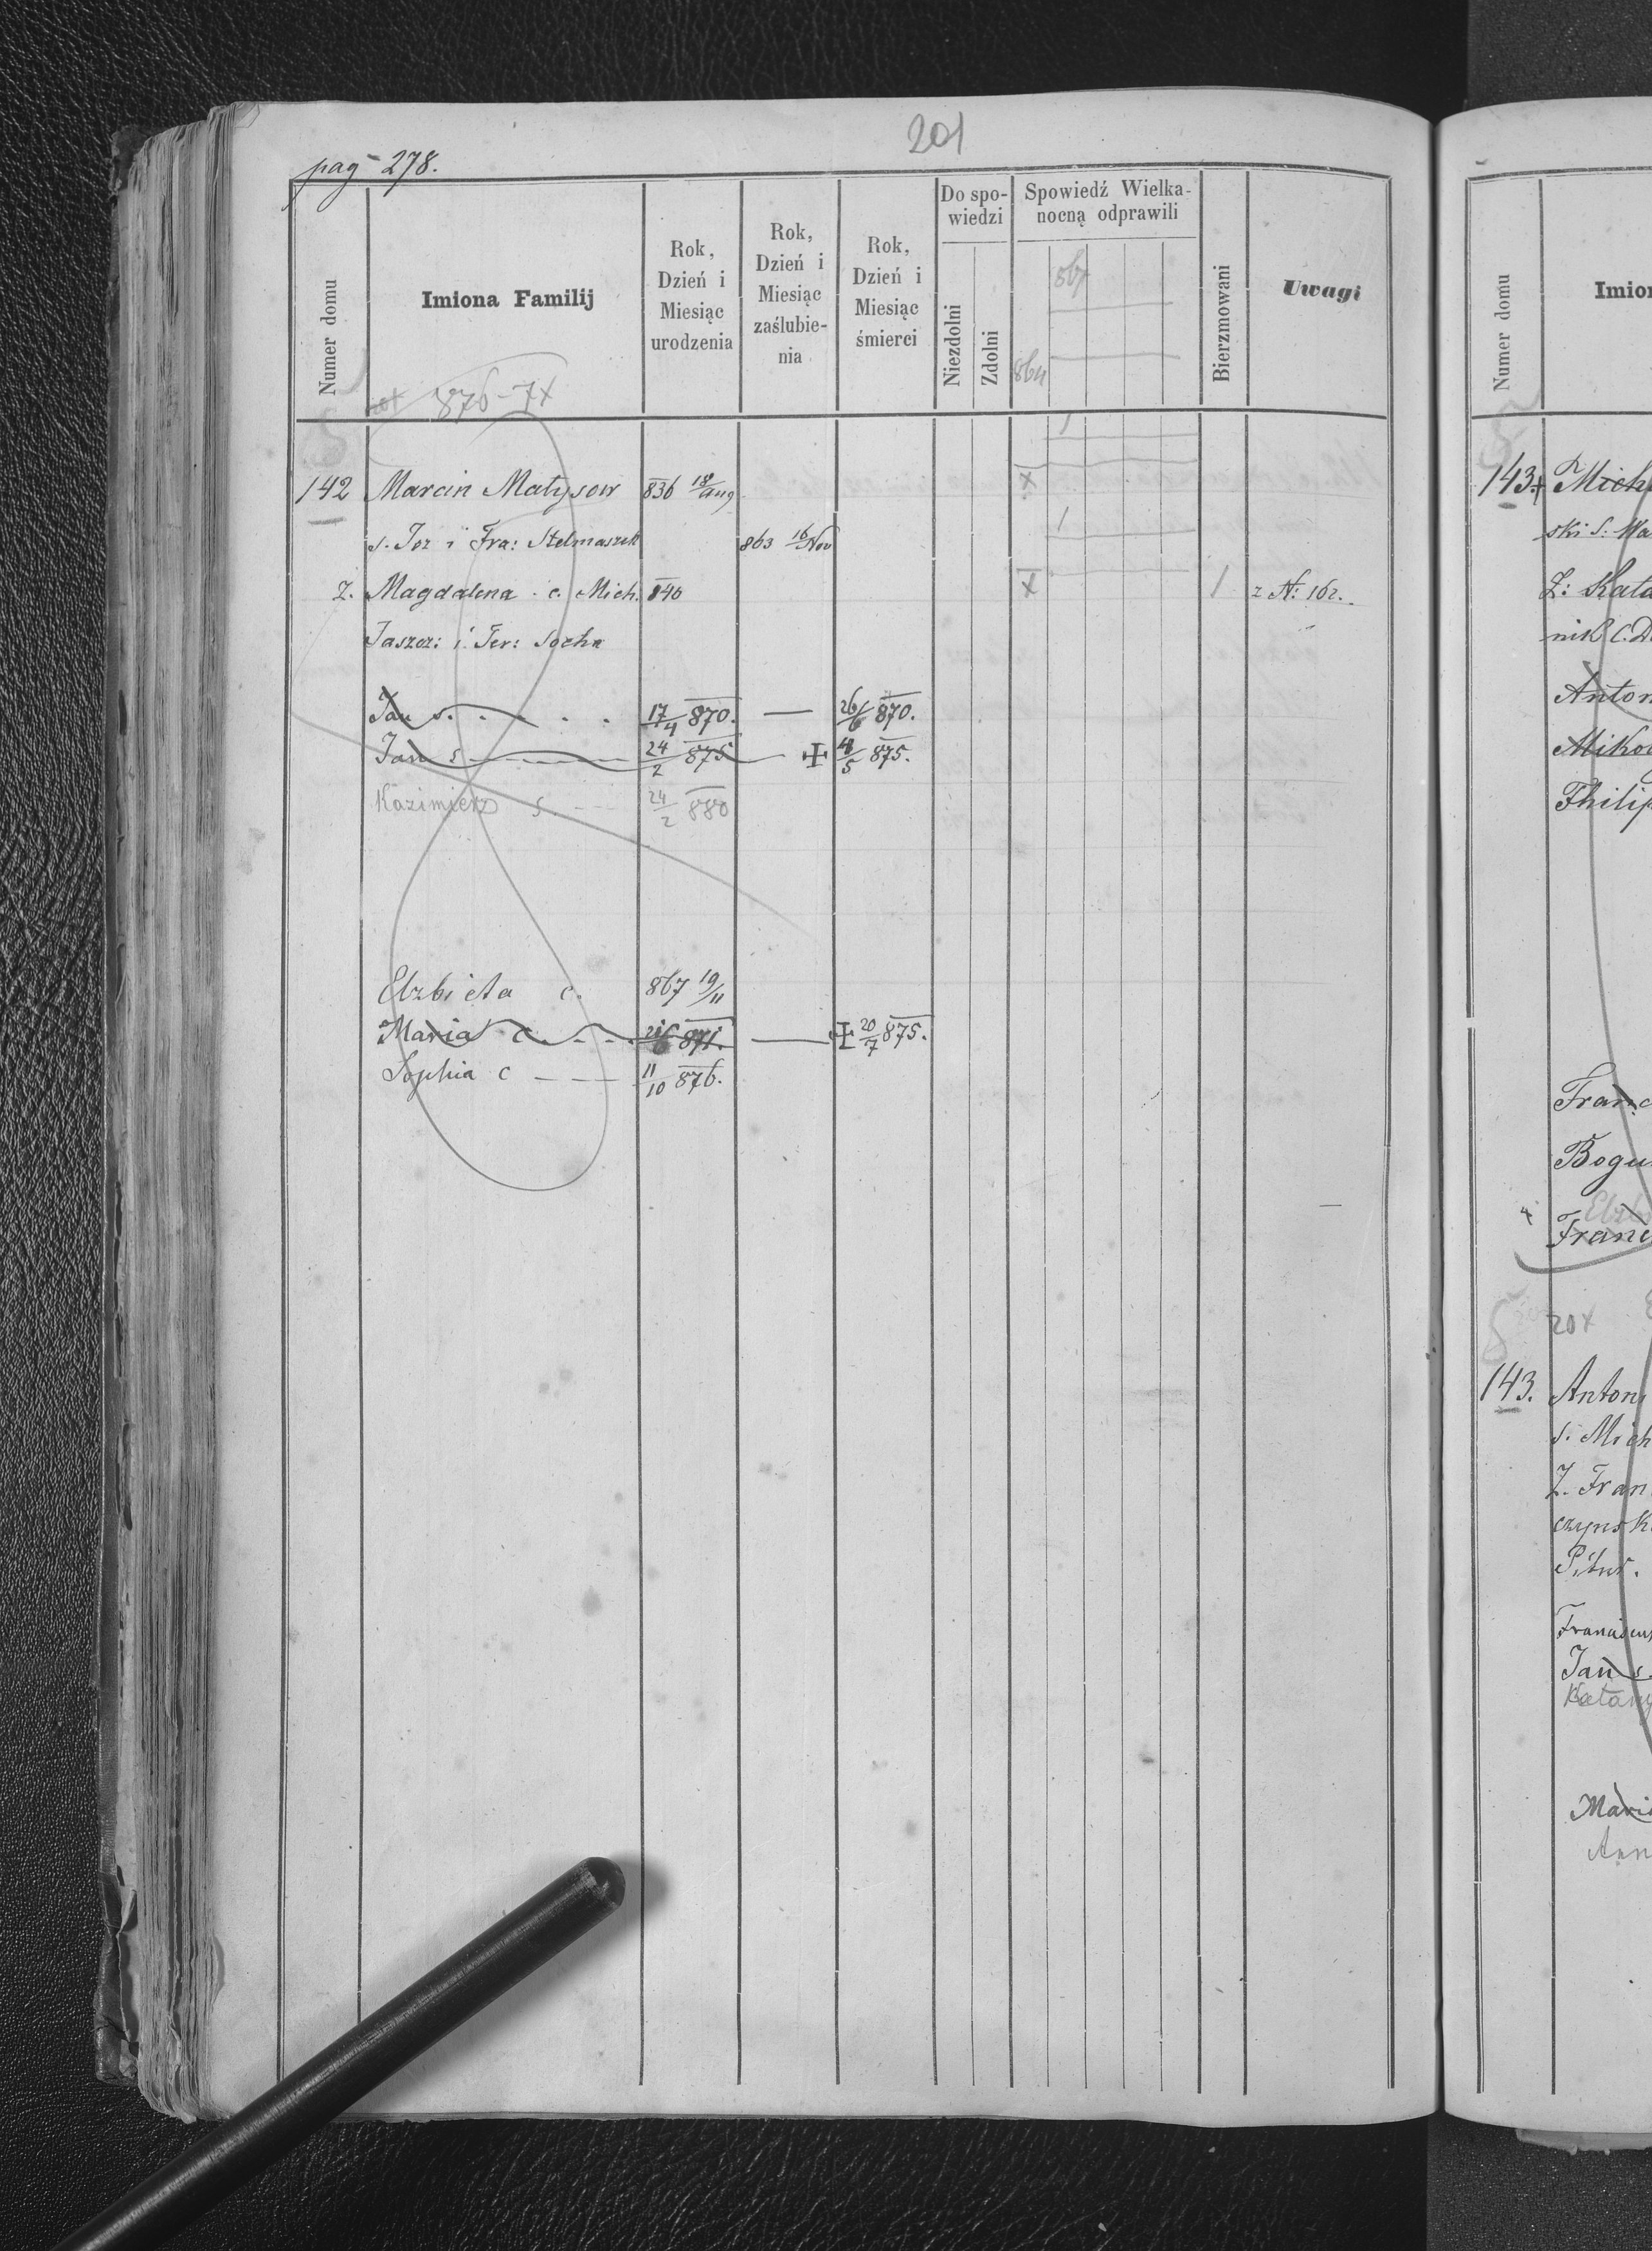 201
pag 278.
Numer domu
Imiona Familij
Rok, Dzień i Miesiąc urodzenia
Rok, Dzień i Miesiąc zaślubie-nia
Rok, Dzień i Miesiąc śmierci
Do spo-wiedzi
Niezdolni
Zdolni
Spowiedź Wielka-nocną odprawili
864
867
Bierzmowani
Uwagi
876-7x
142 Marcin Matysow 836 18/Aug x
s. Joz i Fra: Stelmaszek 863 16/Nov
Z. Magdalena c. Mich. 840 x 1 z N: 162.
Jaszcz: i Ter: Socha
Jan s. 17/4 870. — 26/6 870.
Jan s 24/2 875 — ✠ 4/5 875.
Kazimierz s. 24/2 880
Elzbieta c. 867 19/11
Maria c. 6 871. — ✠ 20/7 875.
Sophia c — 11/10 876.
Numer domu
Imion
143. Mich
ski s: Wa
Z: Kata
nik C. D
Anton
Miko
Philip
Franc
Bogu
Franc
20x
143. Anton
s. Mich
Z. Fran
czynsk
Pitus.
Francis
Jan s.
Katarz
Mari
Ann